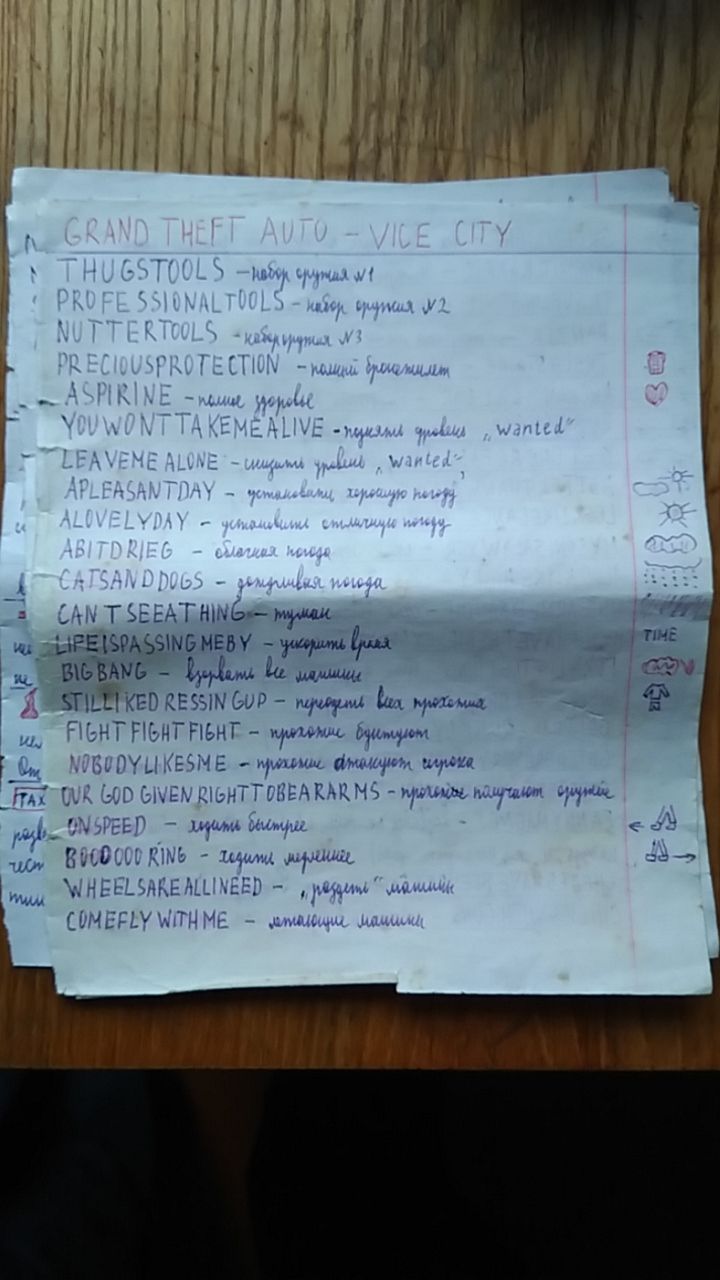 GRAND THEFT AUTO – VICE CITY
THUGSTOOLS – набор оружия №1
PROFESSIONALTOOLS – набор оружия №2
NUTTERTOOLS – набор оружия №3
PRECIOUSPROTECTION – полный бронежилет
ASPIRINE – полное здоровье
YOUWONTTAKEMEALIVE – поднять уровень „wanted“
LEAVEMEALONE – снизить уровень „wanted“
APLEASANTDAY – установить хорошую погоду
ALOVELYDAY – установить отличную погоду
ABITDRIEG – облачная погода
CATSANDDOGS – дождливая погода
CANTSEEATHING – туман
LIFEISPASSINGMEBY – ускорить время TIME
BIGBANG – взорвать все машины
STILLIKEDRESSINGUP – переодеть всех прохожих
FIGHTFIGHTFIGHT – прохожие бунтуют
NOBODYLIKESME – прохожие атакуют игрока
OURGODGIVENRIGHTTOBEARARMS – прохожие получают оружие
ONSPEED – ходить быстрее
BOOOOORING – ходить медленнее
WHEELSAREALLINEED – „раздеть“ машины
COMEFLYWITHME – летающие машины